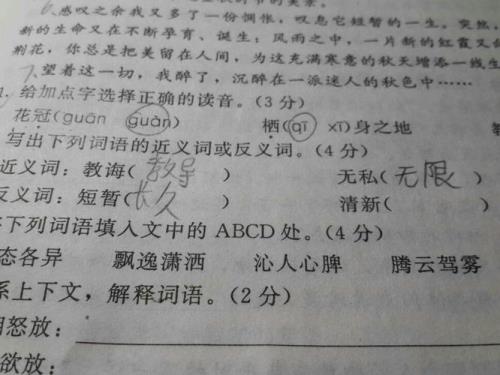 6、感叹之余我又多了一份惆怅，叹息它短暂的一生。突然，
新的生命又在不断孕育、诞生；风雨之中，一片新的红霞又
荆花，你总是把美留在人间，为这充满寒意的秋天增添一线生
7、望着这一切，我醉了，沉醉在一派迷人的秋色中……
给加点字选择正确的读音。(3分)
花冠(guān guàn) 栖(qī xī)身之地
写出下列词语的近义词或反义词。(4分)
近义词：教诲(教导) 无私(无限)
反义词：短暂(长久) 清新( )
下列词语填入文中的ABCD处。(4分)
态各异 飘逸潇洒 沁人心脾 腾云驾雾
系上下文，解释词语。(2分)
怒放：
欲放：